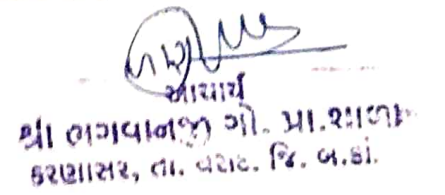 આચાર્ય
શ્રી ભગવાનજી ગો. પ્રા. શાળા
કરણાસર, તા. વરાટ. જિ. બ.કાં.